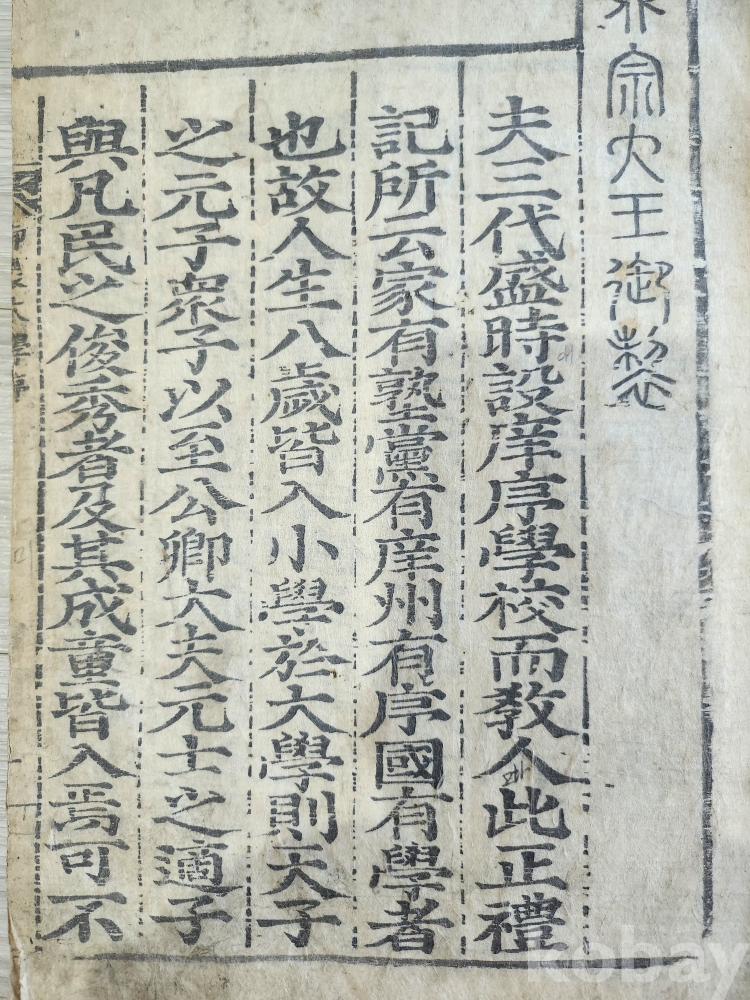 宗大王御製
夫三代盛時設庠序學校而教人此正禮
記所云家有塾黨有庠州有序國有學者
也故人生八歲皆入小學於大學則天子
之元子衆子以至公卿大夫元士之適子
與凡民之俊秀者及其成童皆入焉可不
御製大學序
kobay